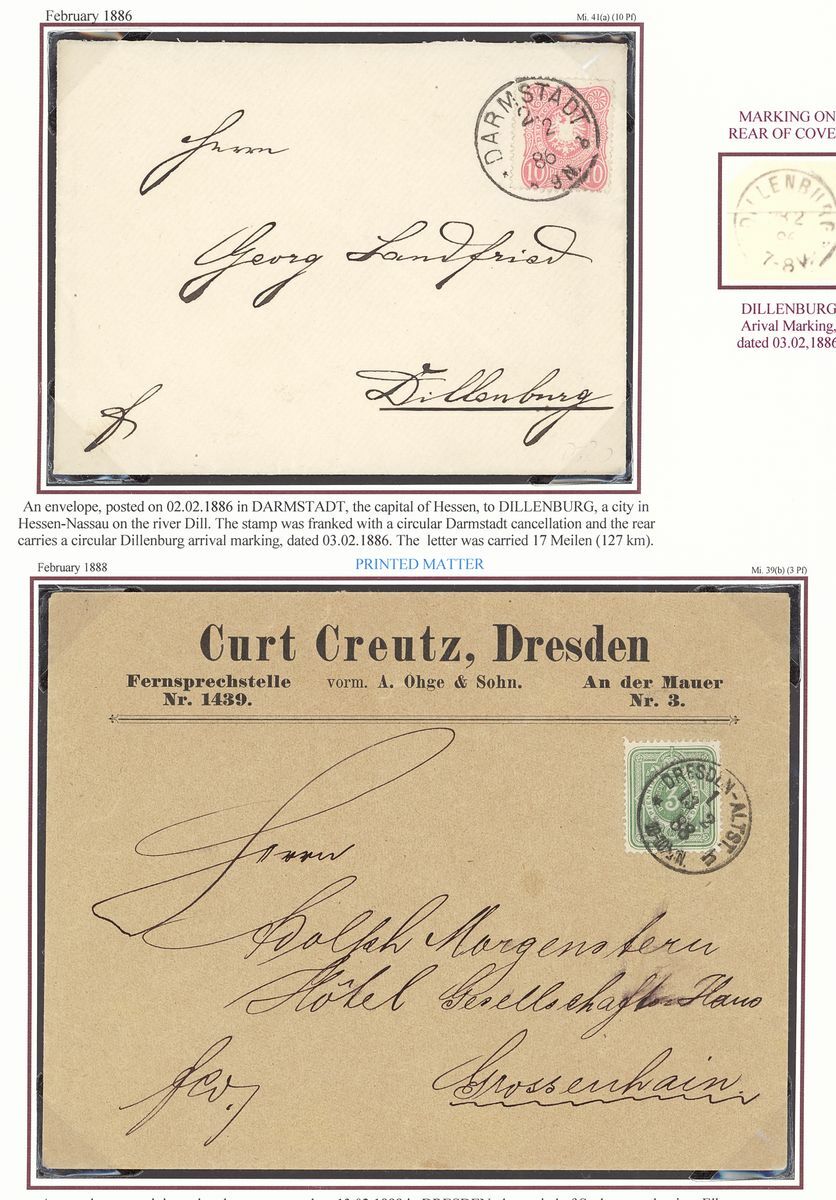 February 1886
Mi. 41(a) (10 Pf)
DARMSTADT
2 2
86
8-9N
10 10
Herrn
Georg Landfried
Dillenburg
MARKING ON
REAR OF COVE
DILLENBURG
3 2
86
7-8V
DILLENBURG
Arival Marking,
dated 03.02,1886
An envelope, posted on 02.02.1886 in DARMSTADT, the capital of Hessen, to DILLENBURG, a city in
Hessen-Nassau on the river Dill. The stamp was franked with a circular Darmstadt cancellation and the rear
carries a circular Dillenburg arrival marking, dated 03.02.1886. The letter was carried 17 Meilen (127 km).
February 1888
PRINTED MATTER
Mi. 39(b) (3 Pf)
Curt Creutz, Dresden
Fernsprechstelle vorm. A. Ohge & Sohn. An der Mauer
Nr. 1439. Nr. 3.
DRESDEN-ALTST.
13 2
88
3
Herrn
Adolph Morgenstern
Hôtel Gesellschafts-Haus
Grossenhain.